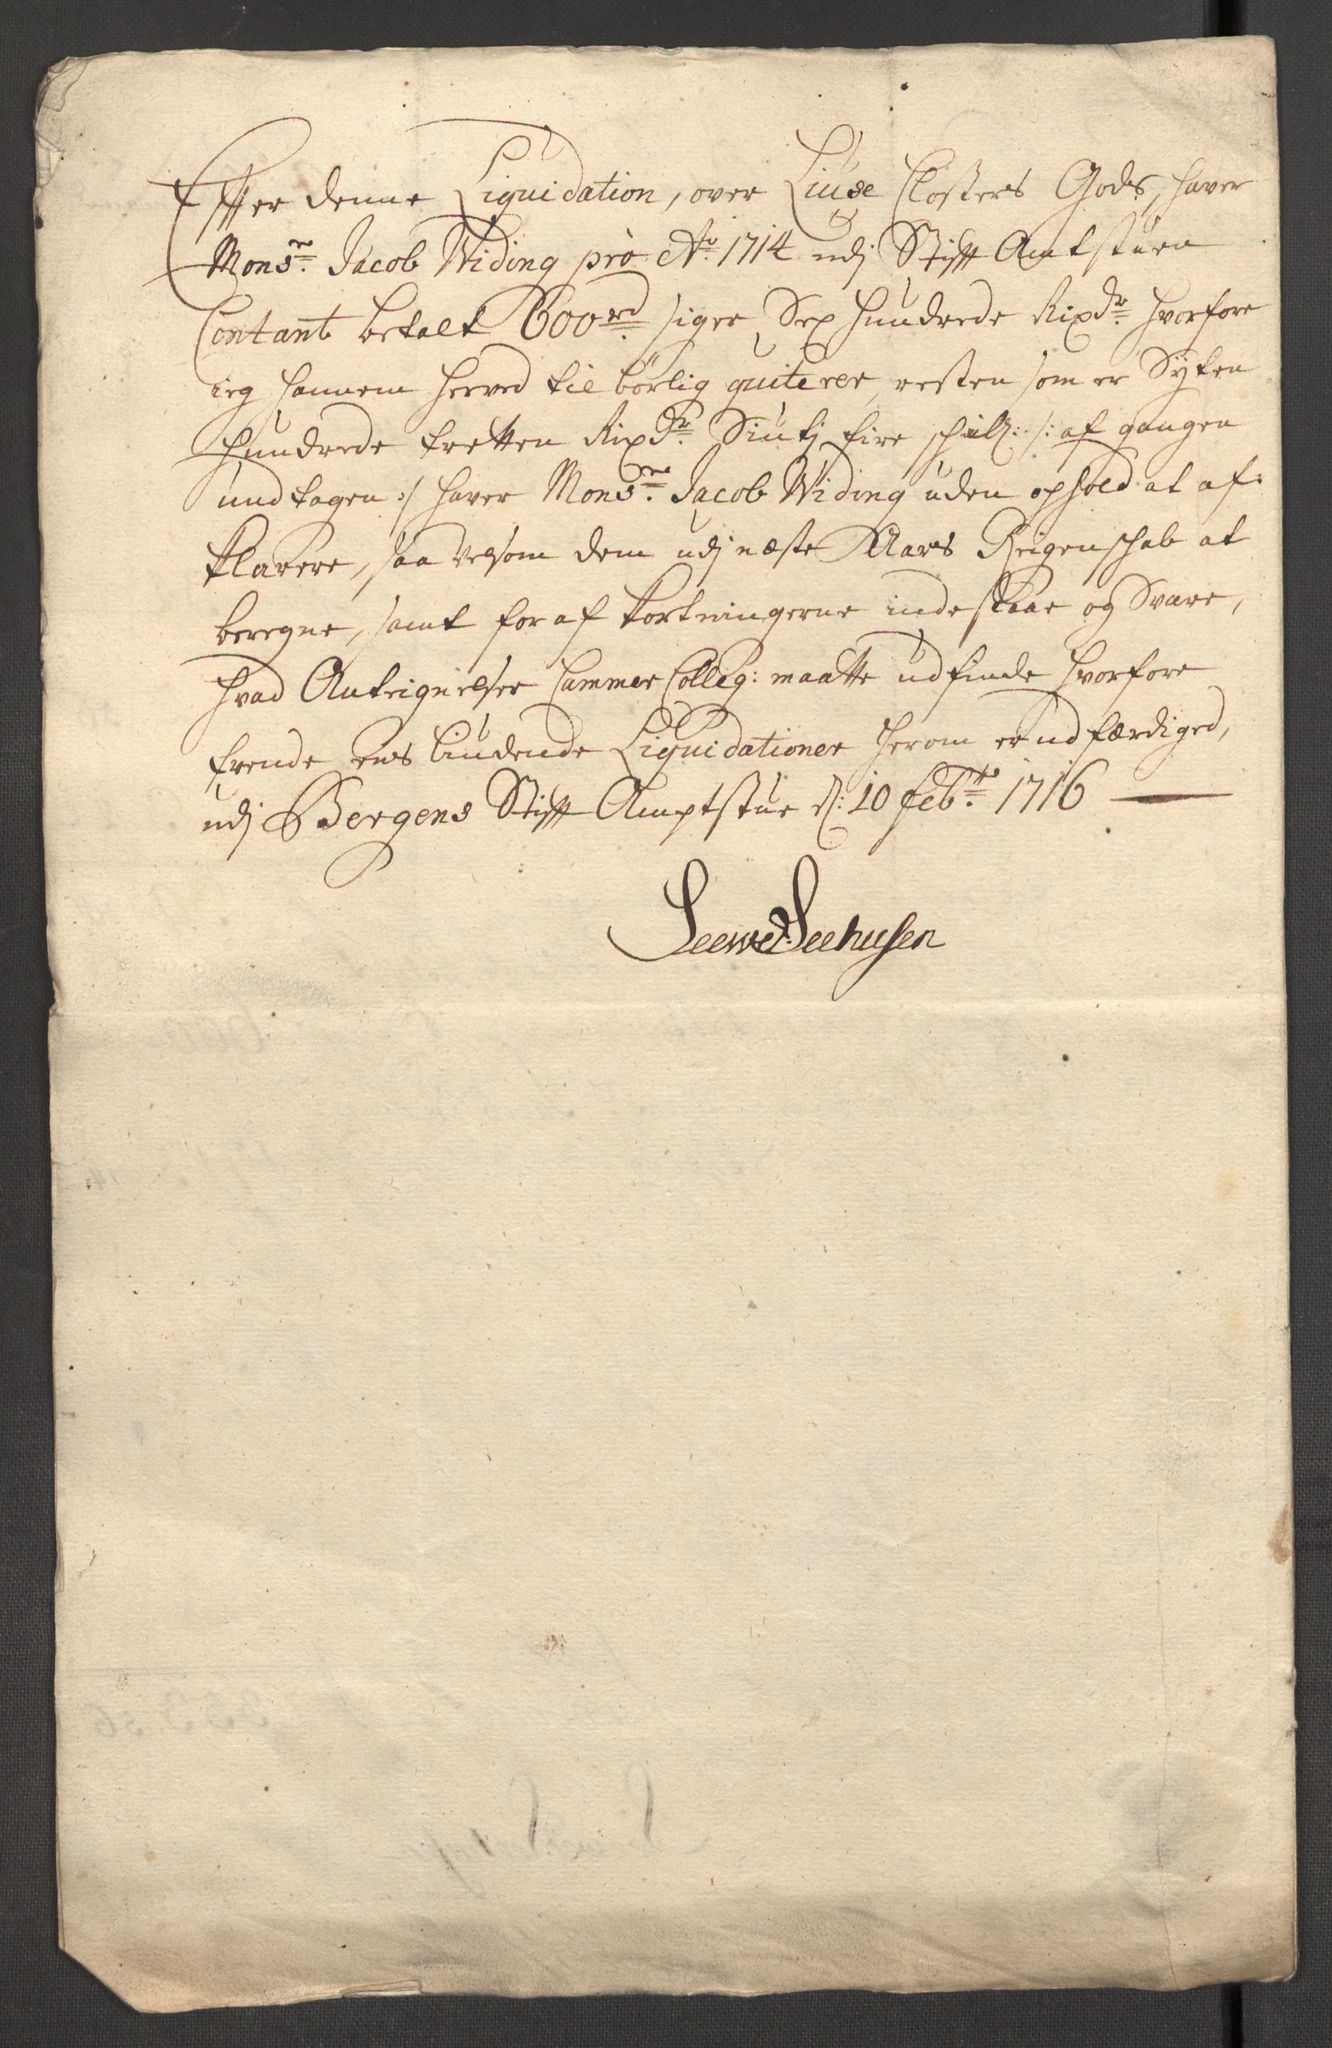 Effter denne Liquidation, over Liuse Closters Gods, haver
Mons:r Jacob Widing pro Ao 1714 udj Stifft Amtstuen
Contant betalt 600 rd siger Sex hundrede Rixdr: hvorfore
ieg hannem herved tilbørlig quiterer, resten som er Sÿtten
hundrede tretten Rixdr: Siutj fire schill: /: afgangen
undtagen :/ haver Mons:r Jacob Widing uden ophold at af:
klarere, saa velsom dem udj næste Aars Reigenschab at
beregne, samt for afkortningerne indestaae og Svare,
hvad Antegnelser Cammer Colleg: maatte udfinde hvorfore
trende eenslindende Liquidationer herom er udfærdiged,
udj Bergens Stifft Amptstue d: 10 Feb: 1716
Seewed Seehusen